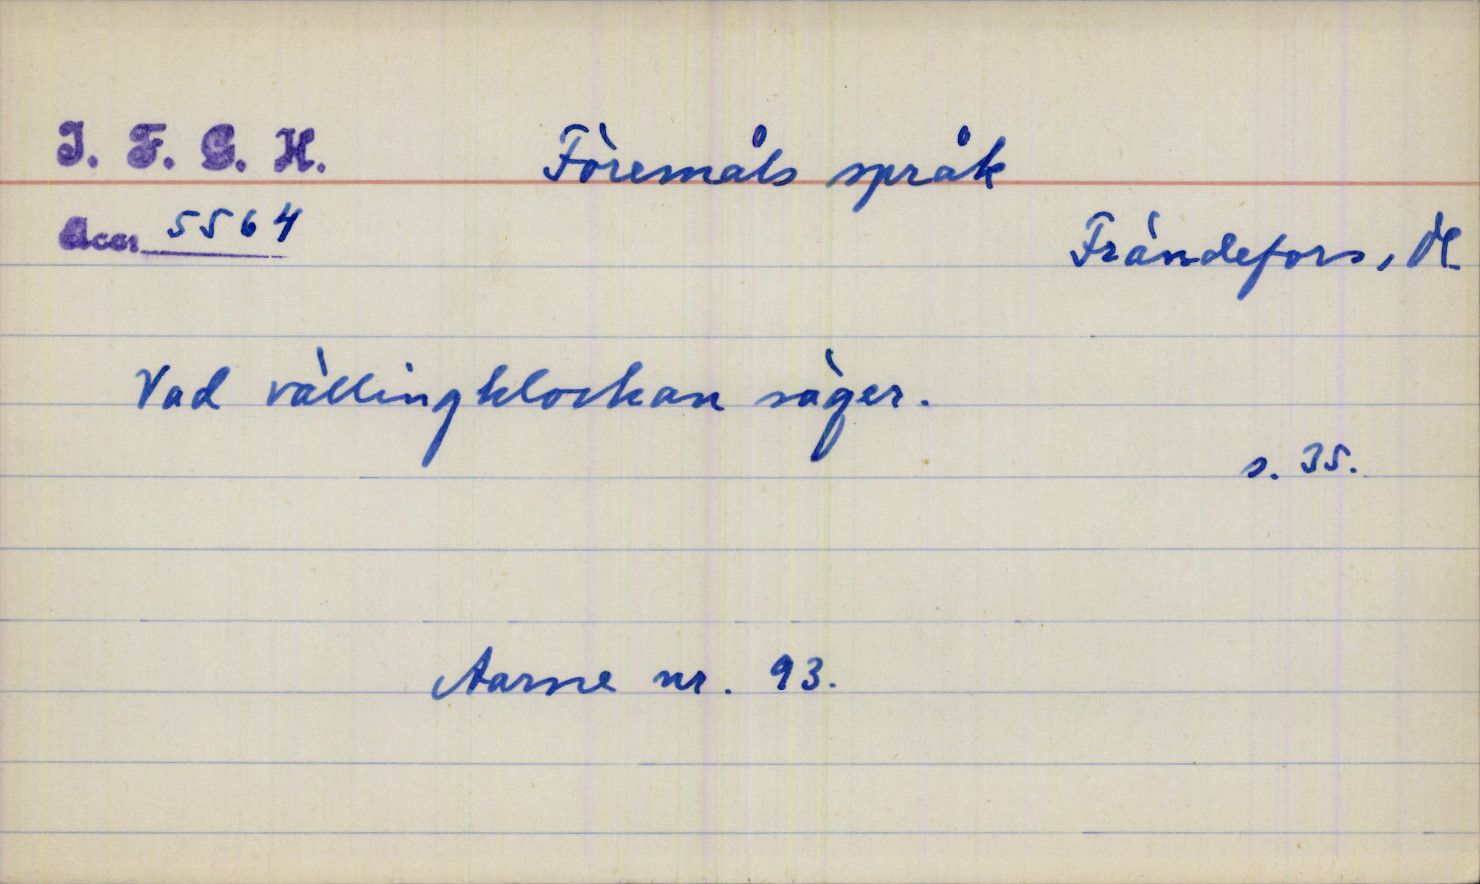 I. F. G. H.
Föremåls språk
Acc. 5564
Frändefors, Dl.
Vad vällingklockan säger.
s. 35.
Aarne nr. 93.